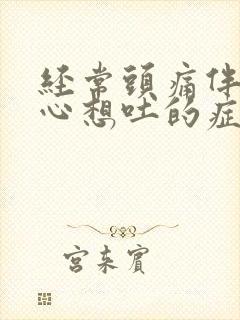 经常頭痛伴
心想吐的症
宮来賓